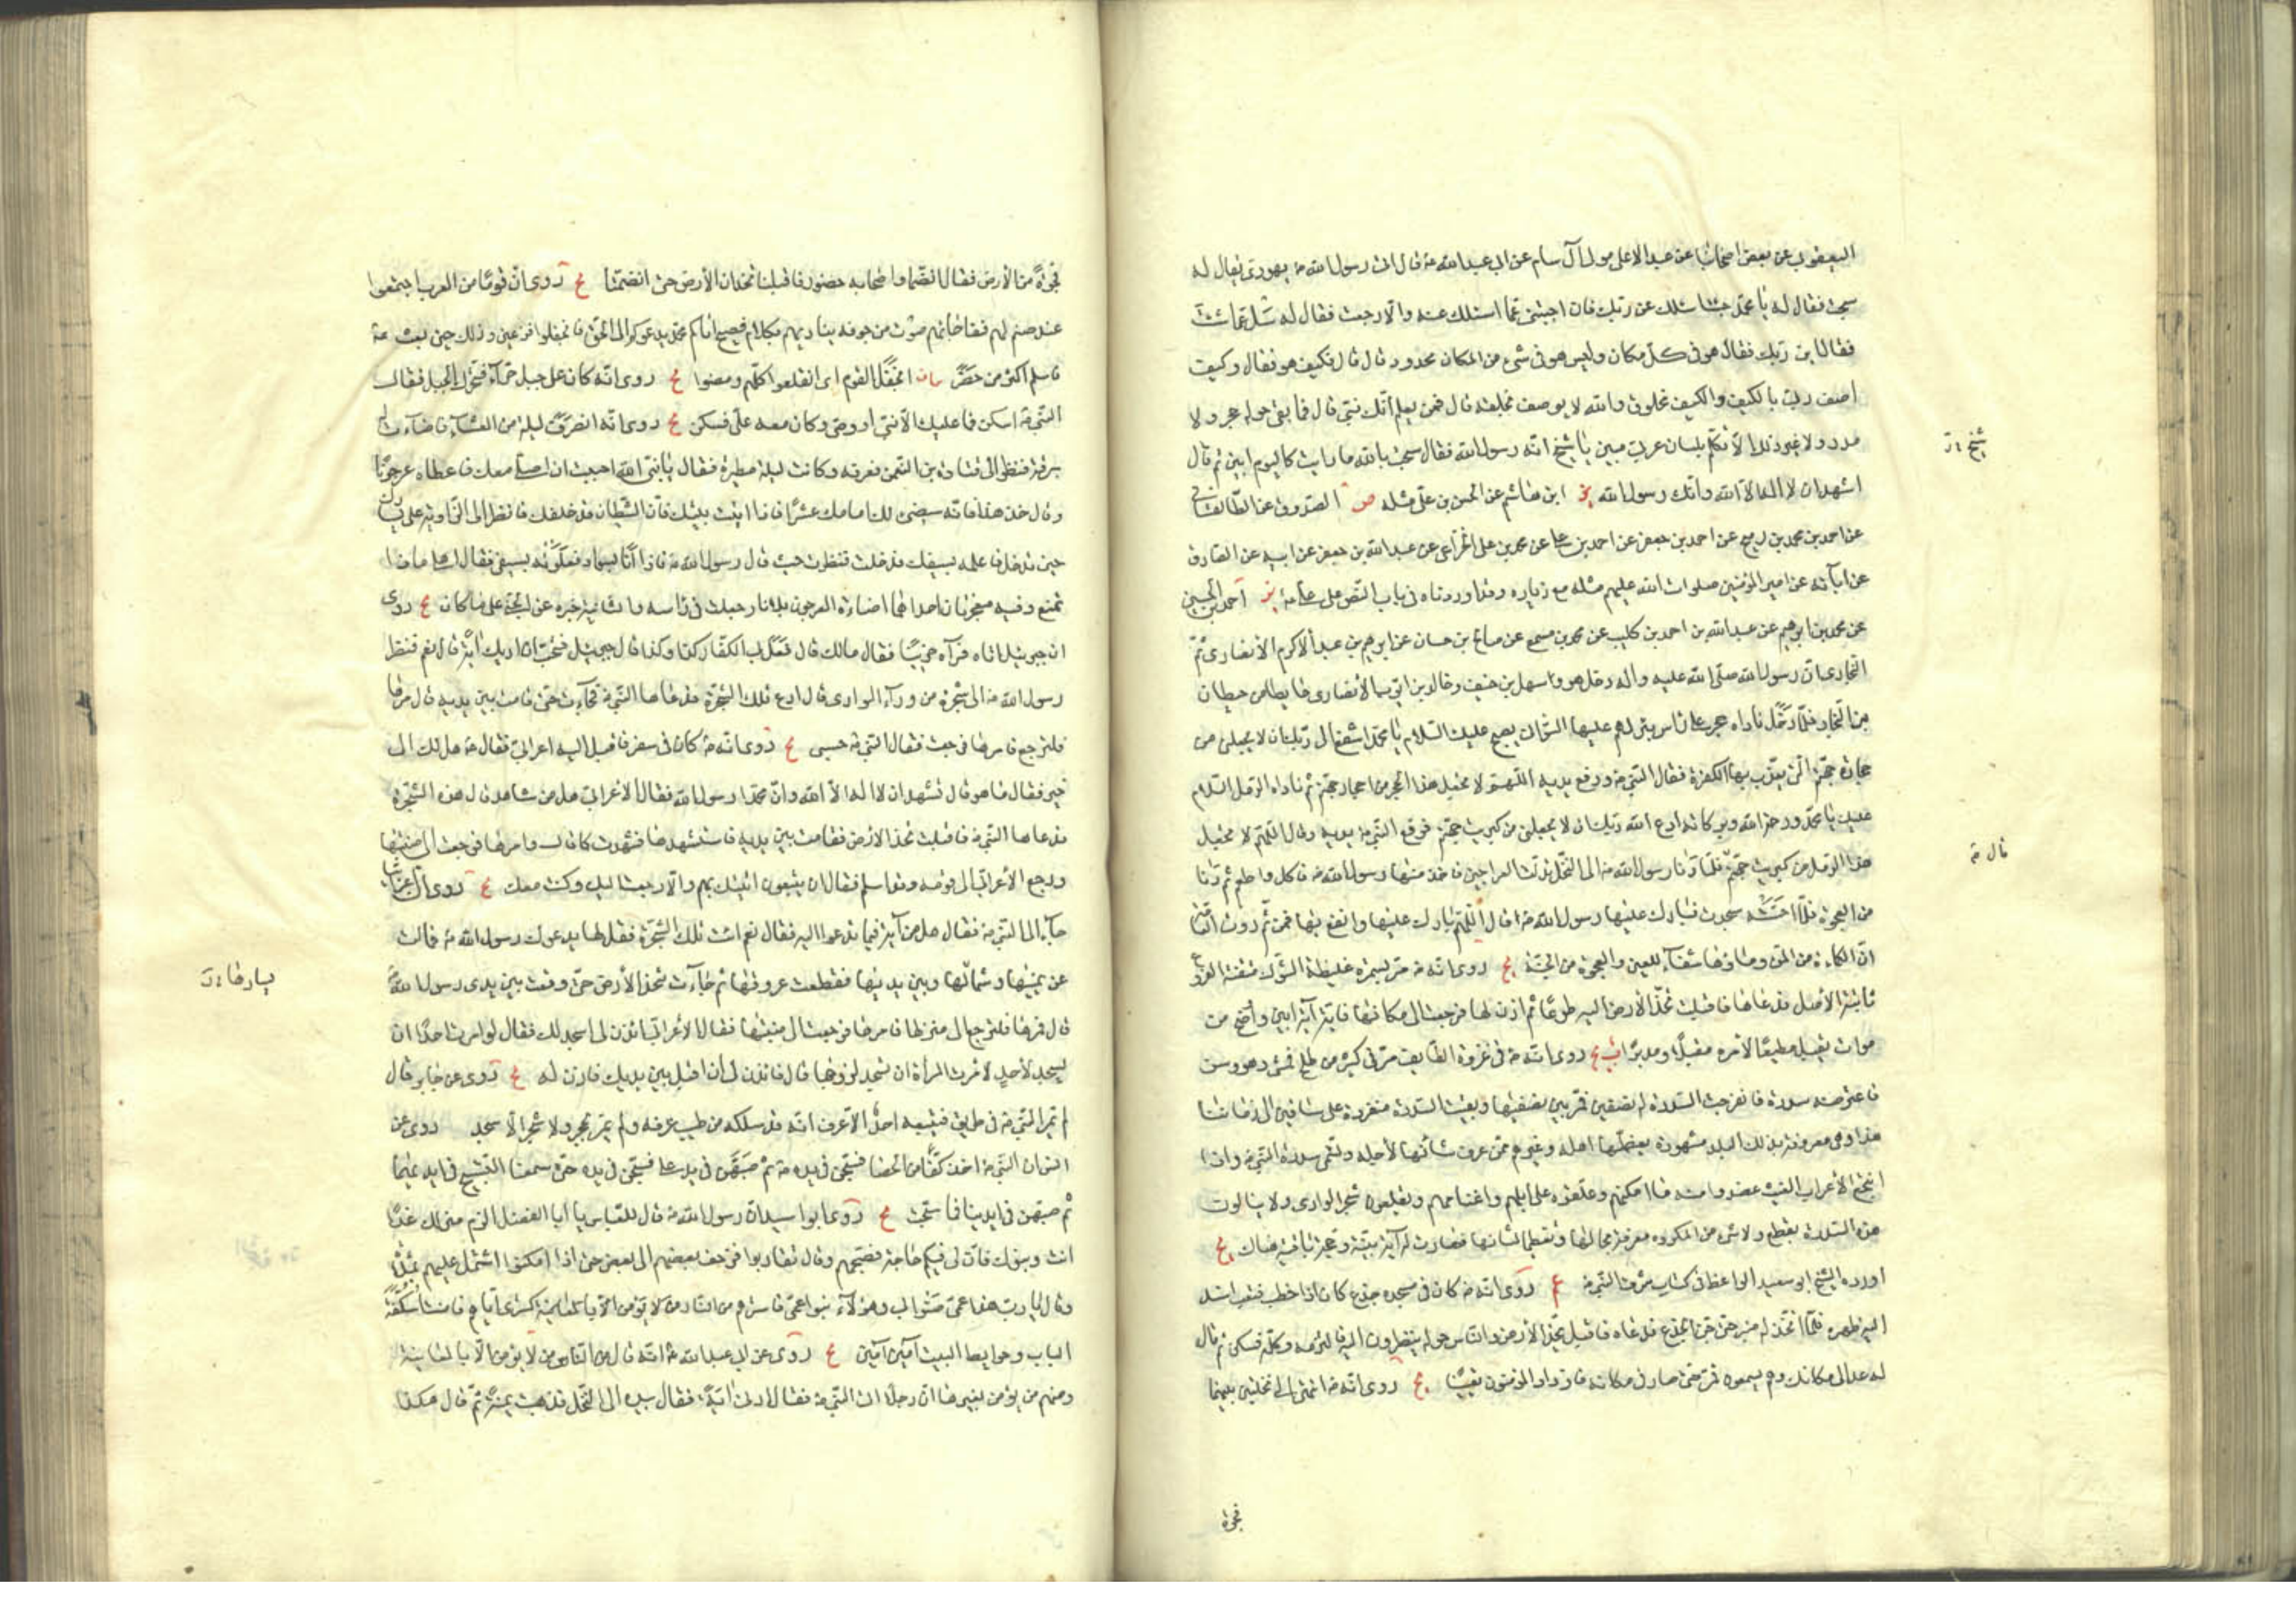 اليعقوبي عن بعض اصحابنا عن عبد الاعلى مولى آل سام عن ابي عبدالله ع قال اتى رسول الله ص يهودي يقال له
سبحت فقال له يا محمد جئت اسئلك عن ربك فان اجبتني عما اسئلك عنه والا رجعت فقال له سل عما شئت
فقال اين ربك فقال هو في كل مكان وليس هو في شيء من المكان محدود قال قال فكيف هو فقال وكيف
اصف ربي بالكيف والكيف مخلوق والله لا يوصف بخلقه قال فمن يعلم انك نبي قال فما بقي حوله حجر ولا
مدر ولا غير ذلك الا تكلم بلسان عربي مبين يا شيخ انه رسول الله فقال سبحت بالله ما رايت كاليوم ابين ثم قال
شيخ
اشهد ان لا اله الا الله وانك رسول الله ير ابن هاشم عن الحسن بن علي مثله ص الصدوق عن الطالقاني
عن احمد بن محمد بن ربيح عن احمد بن جعفر عن احمد بن علي عن محمد بن علي الخزاعي عن عبدالله بن جعفر عن ابيه عن الصادق
عن ابآئه عن امير المؤمنين صلوات الله عليهم مثله مع زيادة وقد اوردناه في باب النص على علي ع ير احمد بن الحسين
عن محمد بن ابرهيم عن عبدالله بن احمد بن كليب عن محمد بن مسمع عن صالح بن حسان عن ابرهيم بن عبد الاكرم الانصاري ثم
النجاري ان رسول الله صلى الله عليه واله دخل هو وسهل بن حنيف وخالد بن ايوب الانصاري حايطا من حيطان
بني النجار فلما دخل ناداه حجر على راس بئر لهم عليها السواني يصيح عليك السلام يا محمد اشفع الى ربك ان لا يجعلني من
حجارة جهنم التي يعذب بها الكفرة فقال النبي ص ورفع يديه اللهم لا تجعل هذا الحجر من احجار جهنم ثم ناداه الرمل السلام
عليك يا محمد ورحمة الله وبركاته ادع الله ربك ان لا يجعلني من كبريت جهنم فرفع النبي ص يديه وقال اللهم لا تجعل
قال ص
هذا الرمل من كبريت جهنم فلما دنا رسول الله ص الى النخل تدلت العراجين فاخذ منها رسول الله ص فاكل واطعم ثم دنا
من العجوة فلما احسته سجدت فبارك عليها رسول الله ص قال اللهم بارك عليها وانفع بها فمن ثم روت العامة
ان الكماءة من المن وماؤها شفآء للعين والعجوة من الجنة يج روي انه ص مر بسمرة غليظة الشوك متقنة الفروع
ثابتة الاصل فدعاها فاقبلت تخد الارض اليه طوعا ثم اذن لها فرجعت الى مكانها فاية آية ابين واوضح من
موات يقبل مطيعا لامره مقبلا ومدبرا يج روي انه ص في غزوة الطايف مر في كثير من طلح فمشى وهو وسن
فاعترضته سدرة فانفرجت السدرة له نصفين فمر بين نصفيها وبقيت السدرة منفردة على ساقين الى زماننا
هذا وهي معروفة بذلك البلد مشهورة يعظمها اهله وغيرهم ممن عرف شانها لاجله وتسمى سدرة النبي ص واذا
انتجع الاعراب الغيث عضدوا منه ما امكنهم وعلقوه على ابلهم واغنامهم ويقلعون شجر الوادي ولا ينالون
هذه السدرة بقطع ولا شيء من المكروه معرفة بحالها وتعظيما لشانها فصارت له آية بينة وحجة باقية هناك يج
اورده الشيخ ابو سعيد الواعظ في كتاب شرف النبي ص يج روي انه ص كان في مسجده جذع كان اذا خطب فتعب اسند
اليه ظهره فلما اتخذ له منبر حن الجذع فدعاه فاقبل يخد الارض والناس حوله ينظرون اليه فالتزمه وكلمه فسكن ثم قال
له عد الى مكانك وهم يسمعون فمر حتى صار في مكانه فازداد المؤمنون يقينا يج روي انه ص انتهى الى نخلتين بينهما
فجوة
فجوة من الارض فقال انضما واصحابه حضور فاقبلتا تخدان الارض حتى انضمتا يج روي ان قوما من العرب اجتمعوا
عند صنم لهم ففاجاهم صوت من جوفه يناديهم بكلام فصيح اتاكم محمد يدعوكم الى الحق فانجفلوا فزعين وذلك حين بعث ص
فاسلم اكثر من حضر بيان انجفل القوم اي انقلعوا كلهم ومضوا يج روي انه كان على جبل حرآء فتحرك الجبل فقال
النبي ص اسكن فما عليك الا نبي او وصي وكان معه علي فسكن يج روي انه انصرف ليلة من العشآء فاضآءت له
برقة فنظر الى قتادة بن النعمن فعرفه وكانت ليلة مطيرة فقال يا نبي الله احببت ان اصلي معك فاعطاه عرجونا
وقال خذ هذا فانه سيضيء لك امامك عشرا فاذا اتيت بيتك فان الشيطان قد خلفك فانظر الى الزاوية على يسارك
حين تدخل فاعله بسيفك فدخلت فنظرت حيث قال رسول الله ص فاذا انا بسواد فعلوته بسيفي فقال اهلي ماذا
تصنع وفيه معجزتان احداهما اضاءة العرجون بلا نار جعلت في راسه والثانية خبره عن الجنة على ما كان يج روي
ان جبرئيل اتاه فرآه حزينا فقال مالك قال فعل بي الكفار كذا وكذا قال جبرئيل فتحب ان اريك آية قال نعم فنظر
رسول الله ص الى شجرة من ورآء الوادي قال ادع تلك الشجرة فدعاها النبي ص فجاءت حتى قامت بين يديه قال مرها
فلترجع فامرها فرجعت فقال النبي ص حسبي يج روي انه ص كان في سفر فاقبل اليه اعرابي فقال ص هل لك الى
خير فقال ما هو قال تشهد ان لا اله الا الله وان محمدا رسول الله فقال الاعرابي هل من شاهد قال هذه الشجرة
فدعاها النبي ص فاقبلت تخد الارض فقامت بين يديه فاستشهدها فشهدت كما قال وامرها فرجعت الى منبتها
ورجع الاعرابي الى قومه وقد اسلم فقال ان يتبعوني اتيتك بهم والا رجعت اليك وكنت معك يج روي ان اعرابيا
جآء الى النبي ص فقال هل من آية فيما تدعو اليه فقال نعم ائت تلك الشجرة فقل لها يدعوك رسول الله ص فمالت
عن يمينها وشمالها وبين يديها فقطعت عروقها ثم جآءت تخد الارض حتى وقفت بين يدي رسول الله
يسارها
قال فمرها فلترجع الى منبتها فامرها فرجعت الى منبتها فقال الاعرابي ائذن لي اسجد لك فقال لو امرت احدا ان
يسجد لاحد لامرت المراة ان تسجد لزوجها قال فائذن لي ان اقبل بين يديك فاذن له يج روي عن جابر قال
لم يمر النبي ص في طريق فيتبعه احد الا عرف انه قد سلكه من طيب عرفه ولم يمر بحجر ولا شجر الا سجد روي عن
انس ان النبي ص اخذ كفا من الحصا فسبحن في يده ص ثم صبهن في يد علي فسبحن في يده حتى سمعنا التسبيح في ايديهما
ثم صبهن في ايدينا فما سبحت يج روي ابو اسيد ان رسول الله ص قال للعباس يا ابا الفضل الزم منزلك غدا
انت وبنوك فان لي فيكم حاجة فصبحهم وقال تقاربوا فزحف بعضهم الى بعض حتى اذا امكنوا اشتمل عليهم بملاءة
وقال يا رب هذا عمي صنو ابي وهؤلآء بنو عمي فاسترهم من النار كستري اياهم فامنت اسكفة
الباب وحوايط البيت آمين آمين يج روي عن ابي عبدالله ع انه قال من الناس من لا يؤمن الا بالمعاينة
ومنهم من يؤمن بغيرها ان رجلا اتى النبي ص فقال ارني آية فقال بيده الى النخل فذهبت يمنة ثم قال هكذا